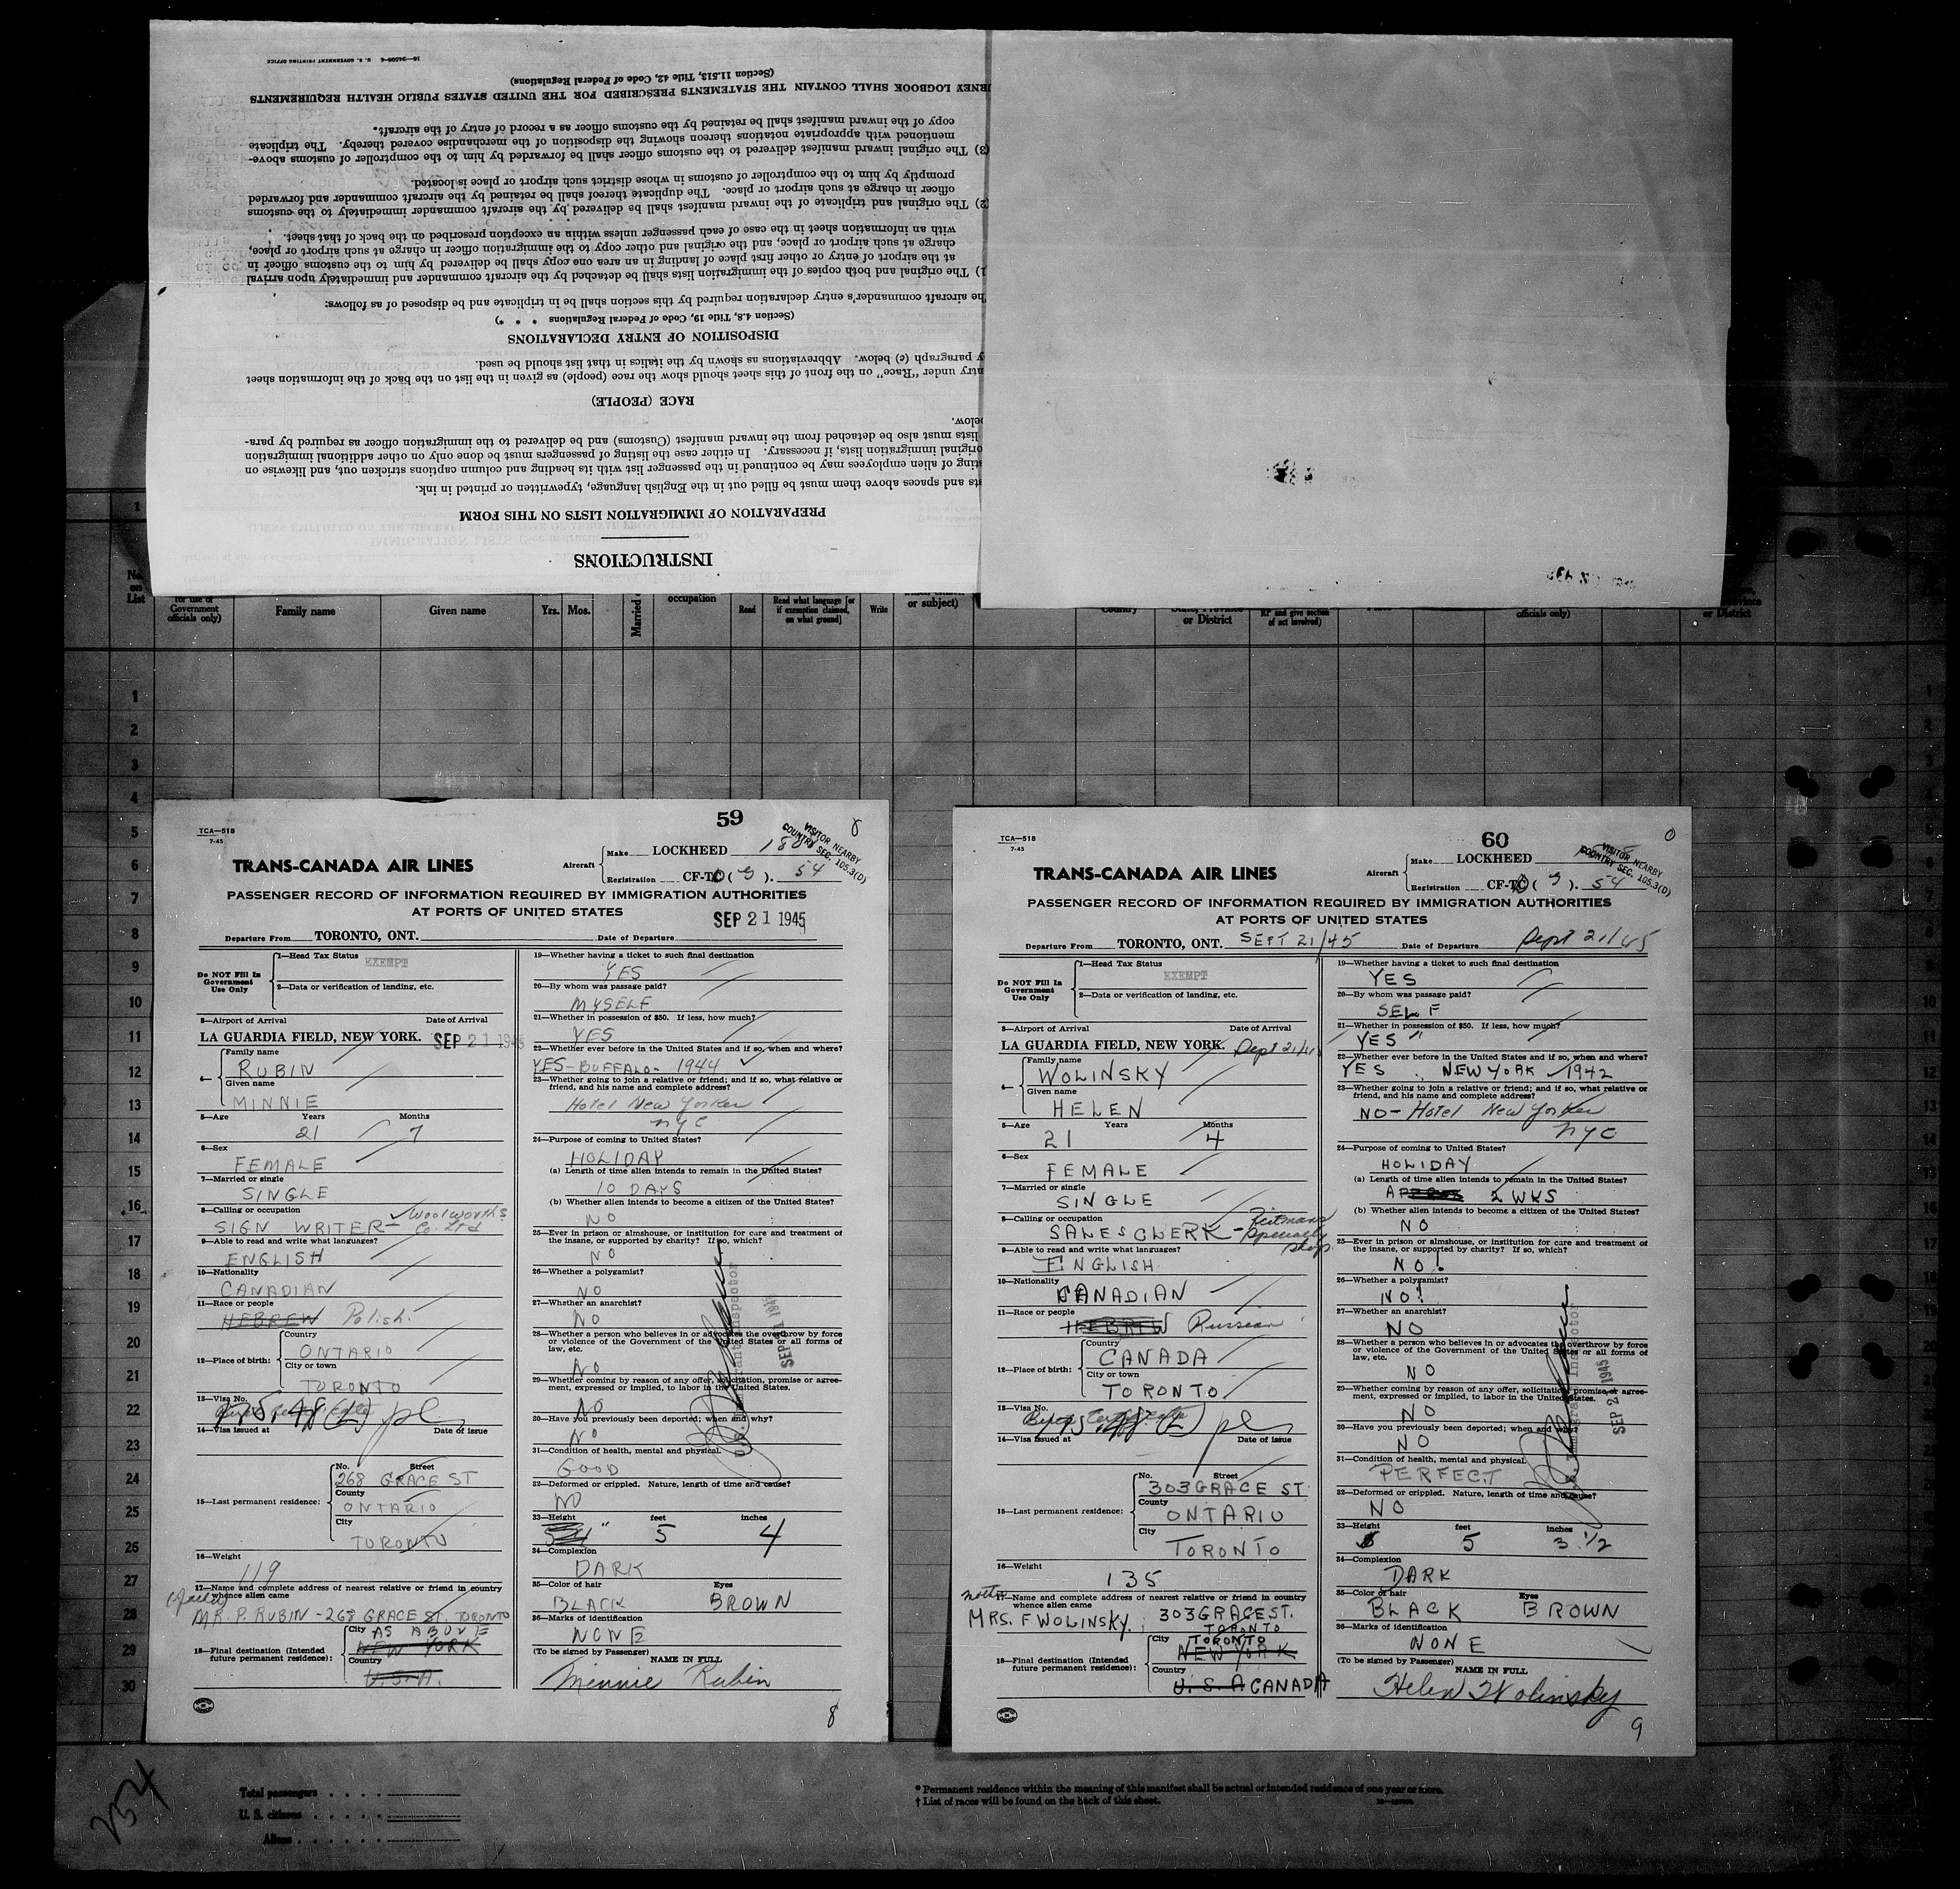 INSTRUCTIONS
PREPARATION OF IMMIGRATION LISTS ON THIS FORM
ts and spaces above them must be filled out in the English language, typewritten or printed in ink.
ting of alien employees may be continued in the passenger list with its heading and column captions stricken out, and likewise on
original immigration lists, if necessary. In either case the listing of passengers must be done only on other additional immigration
lists must also be detached from the inward manifest (Customs) and be delivered to the immigration officer as required by para-
below.
RACE (PEOPLE)
ntry under "Race" on the front of this sheet should show the race (people) as given in the list on the back of the information sheet
y paragraph (c) below. Abbreviations as shown by the italics in that list should be used.
DISPOSITION OF ENTRY DECLARATIONS
(Section 4.8, Title 19, Code of Federal Regulations * * *)
he aircraft commander's entry declaration required by this section shall be in triplicate and be disposed of as follows:
1) The original and both copies of the immigration lists shall be detached by the aircraft commander and immediately upon arrival
at the airport of entry or other first place of landing in an area one copy shall be delivered by him to the customs officer in
charge at such airport or place, and the original and other copy to the immigration officer in charge at such airport or place,
with an information sheet in the case of each passenger unless within an exception prescribed on the back of that sheet.
(2) The original and triplicate of the inward manifest shall be delivered by the aircraft commander immediately to the customs
officer in charge at such airport or place. The duplicate thereof shall be retained by the aircraft commander and forwarded
promptly by him to the comptroller of customs in whose district such airport or place is located.
(3) The original inward manifest delivered to the customs officer shall be forwarded by him to the comptroller of customs above-
mentioned with appropriate notations thereon showing the disposition of the merchandise covered thereby. The triplicate
copy of the inward manifest shall be retained by the customs officer as a record of entry of the aircraft.
RNEY LOGBOOK SHALL CONTAIN THE STATEMENTS PRESCRIBED FOR THE UNITED STATES PUBLIC HEALTH REQUIREMENTS
(Section 11.513, Title 42, Code of Federal Regulations)
U. S. GOVERNMENT PRINTING OFFICE
No. on List
for use of Government officials only)
Family name
Given name
Yrs. Mos.
Married
occupation
Read
Read what language [or if exemption claimed, on what ground]
Write
or subject)
Country
State, Province or District
and give section of act involved)
officials only)
or District
1
2
3
4
5
6
7
8
9
10
11
12
13
14
15
16
17
18
19
20
21
22
23
24
25
26
27
28
29
30
59
8
TCA—518
7-45
TRANS-CANADA AIR LINES
Aircraft
Make LOCKHEED 18
Registration CF-TC ( ). 54
VISITOR NEARBY
COUNTRY SEC. 105.3(D)
PASSENGER RECORD OF INFORMATION REQUIRED BY IMMIGRATION AUTHORITIES
AT PORTS OF UNITED STATES
SEP 21 1945
Departure From TORONTO, ONT. Date of Departure
Do NOT Fill In Government Use Only
1—Head Tax Status
EXEMPT
2—Data or verification of landing, etc.
3—Airport of Arrival Date of Arrival
LA GUARDIA FIELD, NEW YORK. SEP 21 1945
4—
Family name
RUBIN
Given name
MINNIE
5—Age Years Months
21 7
6—Sex
FEMALE
7—Married or single
SINGLE
8—Calling or occupation
SIGN WRITER— Woolworths Co. Ltd
9—Able to read and write what languages?
ENGLISH
10—Nationality
CANADIAN
11—Race or people
HEBREW Polish
12—Place of birth:
Country
ONTARIO
City or town
TORONTO
13—Visa No.
14—Visa issued at Date of issue
15—Last permanent residence:
No. Street
268 GRACE ST
County
ONTARIO
City
TORONTO
16—Weight
119
17—Name and complete address of nearest relative or friend in country
whence alien came
(Father)
MR. P. RUBIN - 268 GRACE ST. TORONTO
18—Final destination (Intended future permanent residence):
City AS ABOVE
NEW YORK
Country
U.S.A.
19—Whether having a ticket to such final destination
YES
20—By whom was passage paid?
MYSELF
21—Whether in possession of $50. If less, how much?
YES
22—Whether ever before in the United States and if so, when and where?
YES - BUFFALO - 1944
23—Whether going to join a relative or friend; and if so, what relative or
friend, and his name and complete address?
Hotel New Yorker
NYC
24—Purpose of coming to United States?
HOLIDAY
(a) Length of time alien intends to remain in the United States?
10 DAYS
(b) Whether alien intends to become a citizen of the United States?
NO
25—Ever in prison or almshouse, or institution for care and treatment of
the insane, or supported by charity? If so, which?
NO
26—Whether a polygamist?
NO
27—Whether an anarchist?
NO
28—Whether a person who believes in or advocates the overthrow by force
or violence of the Government of the United States or all forms of
law, etc.
NO
29—Whether coming by reason of any offer, solicitation, promise or agree-
ment, expressed or implied, to labor in the United States.
NO
30—Have you previously been deported; when and why?
NO
31—Condition of health, mental and physical.
GOOD
32—Deformed or crippled. Nature, length of time and cause?
NO
33—Height feet inches
5 4
34—Complexion
DARK
35—Color of hair Eyes
BLACK BROWN
36—Marks of identification
NONE
(To be signed by Passenger) NAME IN FULL
Minnie Rubin
8
60
TCA—518
7-45
TRANS-CANADA AIR LINES
Aircraft
Make LOCKHEED
Registration CF-TC ( ). 54
VISITOR NEARBY
COUNTRY SEC. 105.3(D)
PASSENGER RECORD OF INFORMATION REQUIRED BY IMMIGRATION AUTHORITIES
AT PORTS OF UNITED STATES
Departure From TORONTO, ONT. SEPT 21/45 Date of Departure Sept 21/45
Do NOT Fill In Government Use Only
1—Head Tax Status
EXEMPT
2—Data or verification of landing, etc.
3—Airport of Arrival Date of Arrival
LA GUARDIA FIELD, NEW YORK. Sept 21/45
4—
Family name
WOLINSKY
Given name
HELEN
5—Age Years Months
21 4
6—Sex
FEMALE
7—Married or single
SINGLE
8—Calling or occupation
SALES CLERK - Reitmans Specialty Shop
9—Able to read and write what languages?
ENGLISH
10—Nationality
CANADIAN
11—Race or people
HEBREW Russian
12—Place of birth:
Country
CANADA
City or town
TORONTO
13—Visa No.
14—Visa issued at Date of issue
15—Last permanent residence:
No. Street
303 GRACE ST.
County
ONTARIO
City
TORONTO
16—Weight
135
17—Name and complete address of nearest relative or friend in country
whence alien came
Mother
MRS. F WOLINSKY. 303 GRACE ST.
TORONTO
18—Final destination (Intended future permanent residence):
City TORONTO
NEW YORK
Country
U. S. A CANADA
19—Whether having a ticket to such final destination
YES
20—By whom was passage paid?
SELF
21—Whether in possession of $50. If less, how much?
YES
22—Whether ever before in the United States and if so, when and where?
YES NEW YORK 1942
23—Whether going to join a relative or friend; and if so, what relative or
friend, and his name and complete address?
NO - Hotel New Yorker
NYC
24—Purpose of coming to United States?
HOLIDAY
(a) Length of time alien intends to remain in the United States?
2 WKS
(b) Whether alien intends to become a citizen of the United States?
NO
25—Ever in prison or almshouse, or institution for care and treatment of
the insane, or supported by charity? If so, which?
NO!
26—Whether a polygamist?
NO!
27—Whether an anarchist?
NO
28—Whether a person who believes in or advocates the overthrow by force
or violence of the Government of the United States or all forms of
law, etc.
NO
29—Whether coming by reason of any offer, solicitation, promise or agree-
ment, expressed or implied, to labor in the United States.
NO
30—Have you previously been deported; when and why?
NO
31—Condition of health, mental and physical.
PERFECT
32—Deformed or crippled. Nature, length of time and cause?
NO
33—Height feet inches
5 3 1/2
34—Complexion
DARK
35—Color of hair Eyes
BLACK BROWN
36—Marks of identification
NONE
(To be signed by Passenger)
NAME IN FULL
Helen Wolinsky
9
U.S. Immigrant Inspector
SEP 21 1945
254
Total passengers
U. S. citizens
Aliens
* Permanent residence within the meaning of this manifest shall be actual or intended residence of one year or more.
† List of races will be found on the back of this sheet.